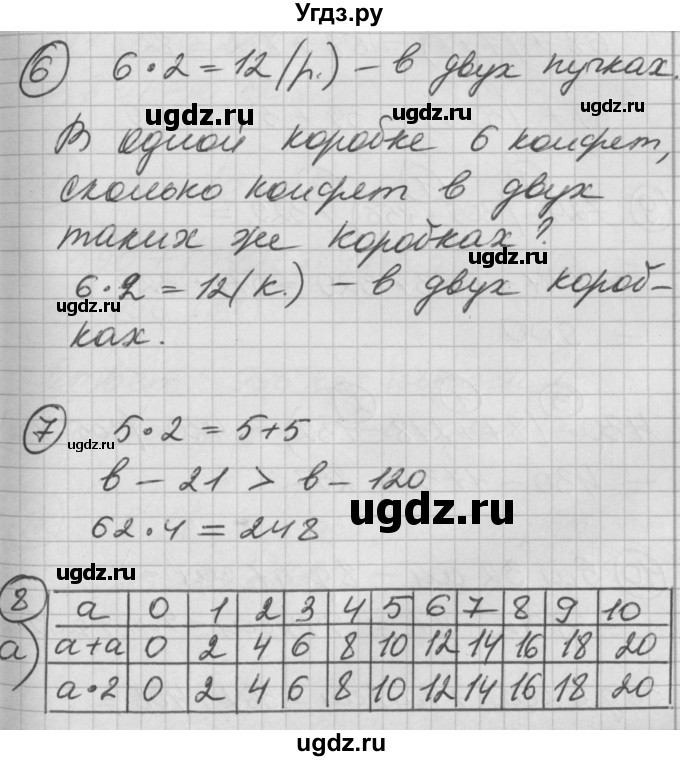 Угдз.ру
6 6·2=12(р.) – в двух пучках.
ugdz.ru ugdz.ru
В одной коробке 6 конфет,
сколько конфет в двух
ugdz.ru
таких же коробках?
6·2=12(к.) – в двух короб-
ugdz.ru ugdz.ru
ках.
7 5·2=5+5
ugdz.ru ugdz.ru
в – 21 > в – 120
ugdz.ru
62·4=248
ugdz.ru ugdz.ru
8 а 0 1 2 3 4 5 6 7 8 9 10
а) а+а 0 2 4 6 8 10 12 14 16 18 20
а·2 0 2 4 6 8 10 12 14 16 18 20
ugdz.ru